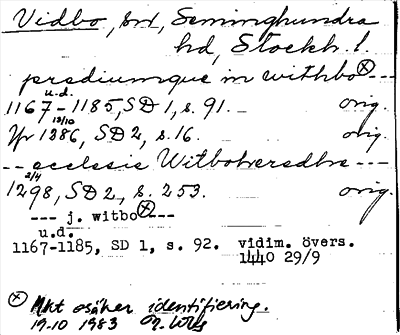 Vidbo, sn, Seminghundra
hd, Stockh. l.
prediumque in withbo ⊗ ---
u.d.
1167 - 1185, SD 1, s. 91. orig.
13/10
Yr 1286, SD 2, s. 16. orig.
-- ecclesie Witboharadhre ---
2/4
1298, SD 2, s. 253. orig.
--- j. witbo ⊗ ---
u.d.
1167-1185, SD 1, s. 92. vidim. övers.
1440 29/9
⊗ Mkt osäker identifiering.
19.10 1983